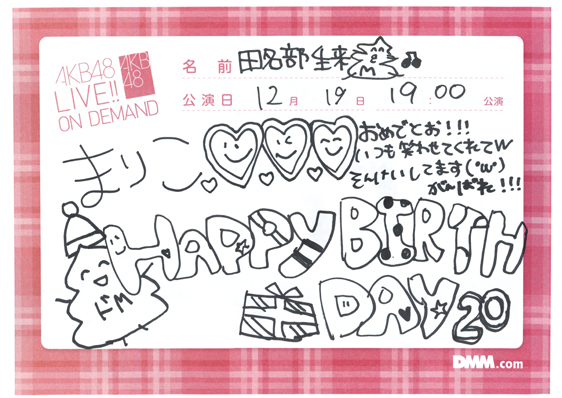 AKB48
LIVE!!
ON DEMAND
AKB
48
名前 田名部生来
公演日 12月 19日 19:00 公演
まりこ
おめでとお!!!
いつも笑わせてくれてw
そんけいしてます('ω')
がんばれ!!!
HAPPY BIRTH
DAY 20
DMM.com